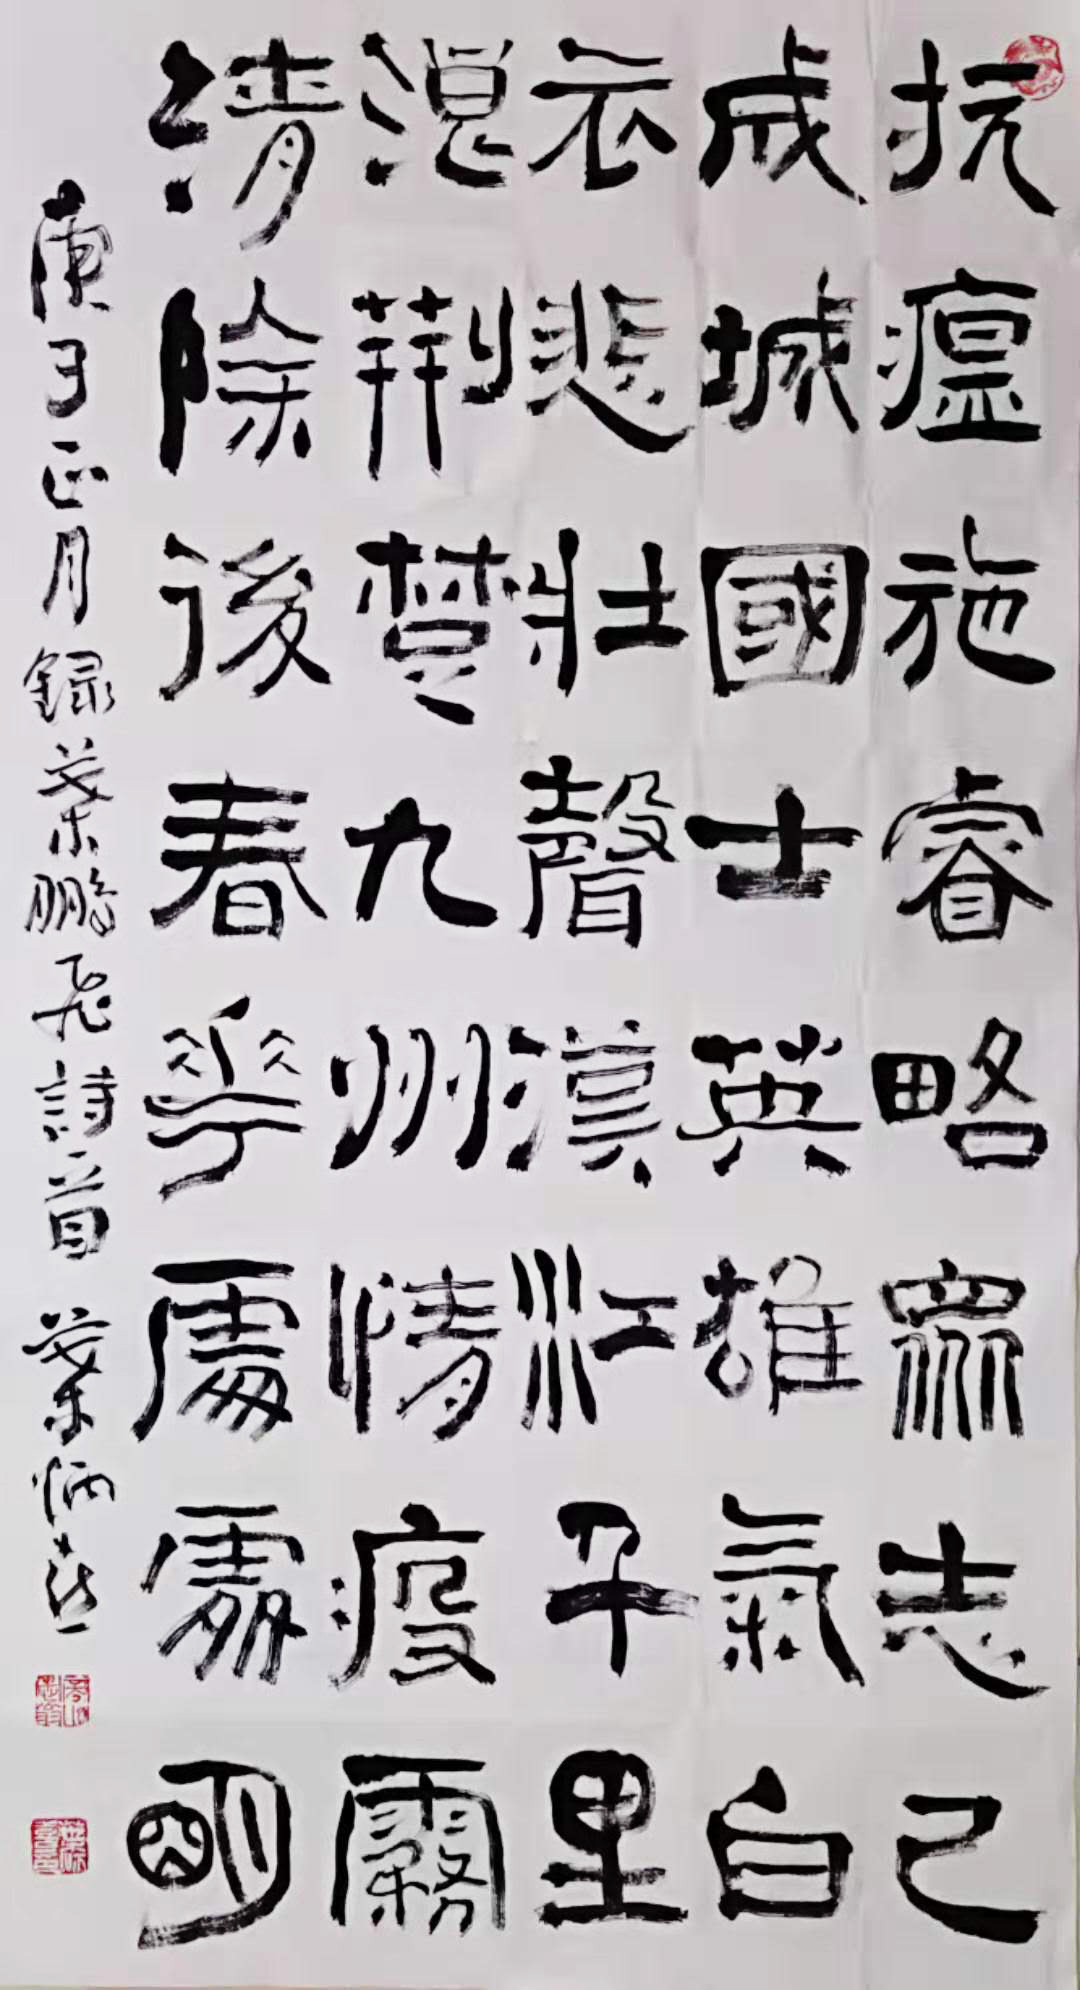 抗瘟施睿略眾志已
成城國士英雄氣白
衣悲壯聲漢江千里
浪荆楚九州情疫霧
清除後春華處處明
庚子正月録葉鵬飛詩一首 葉炳